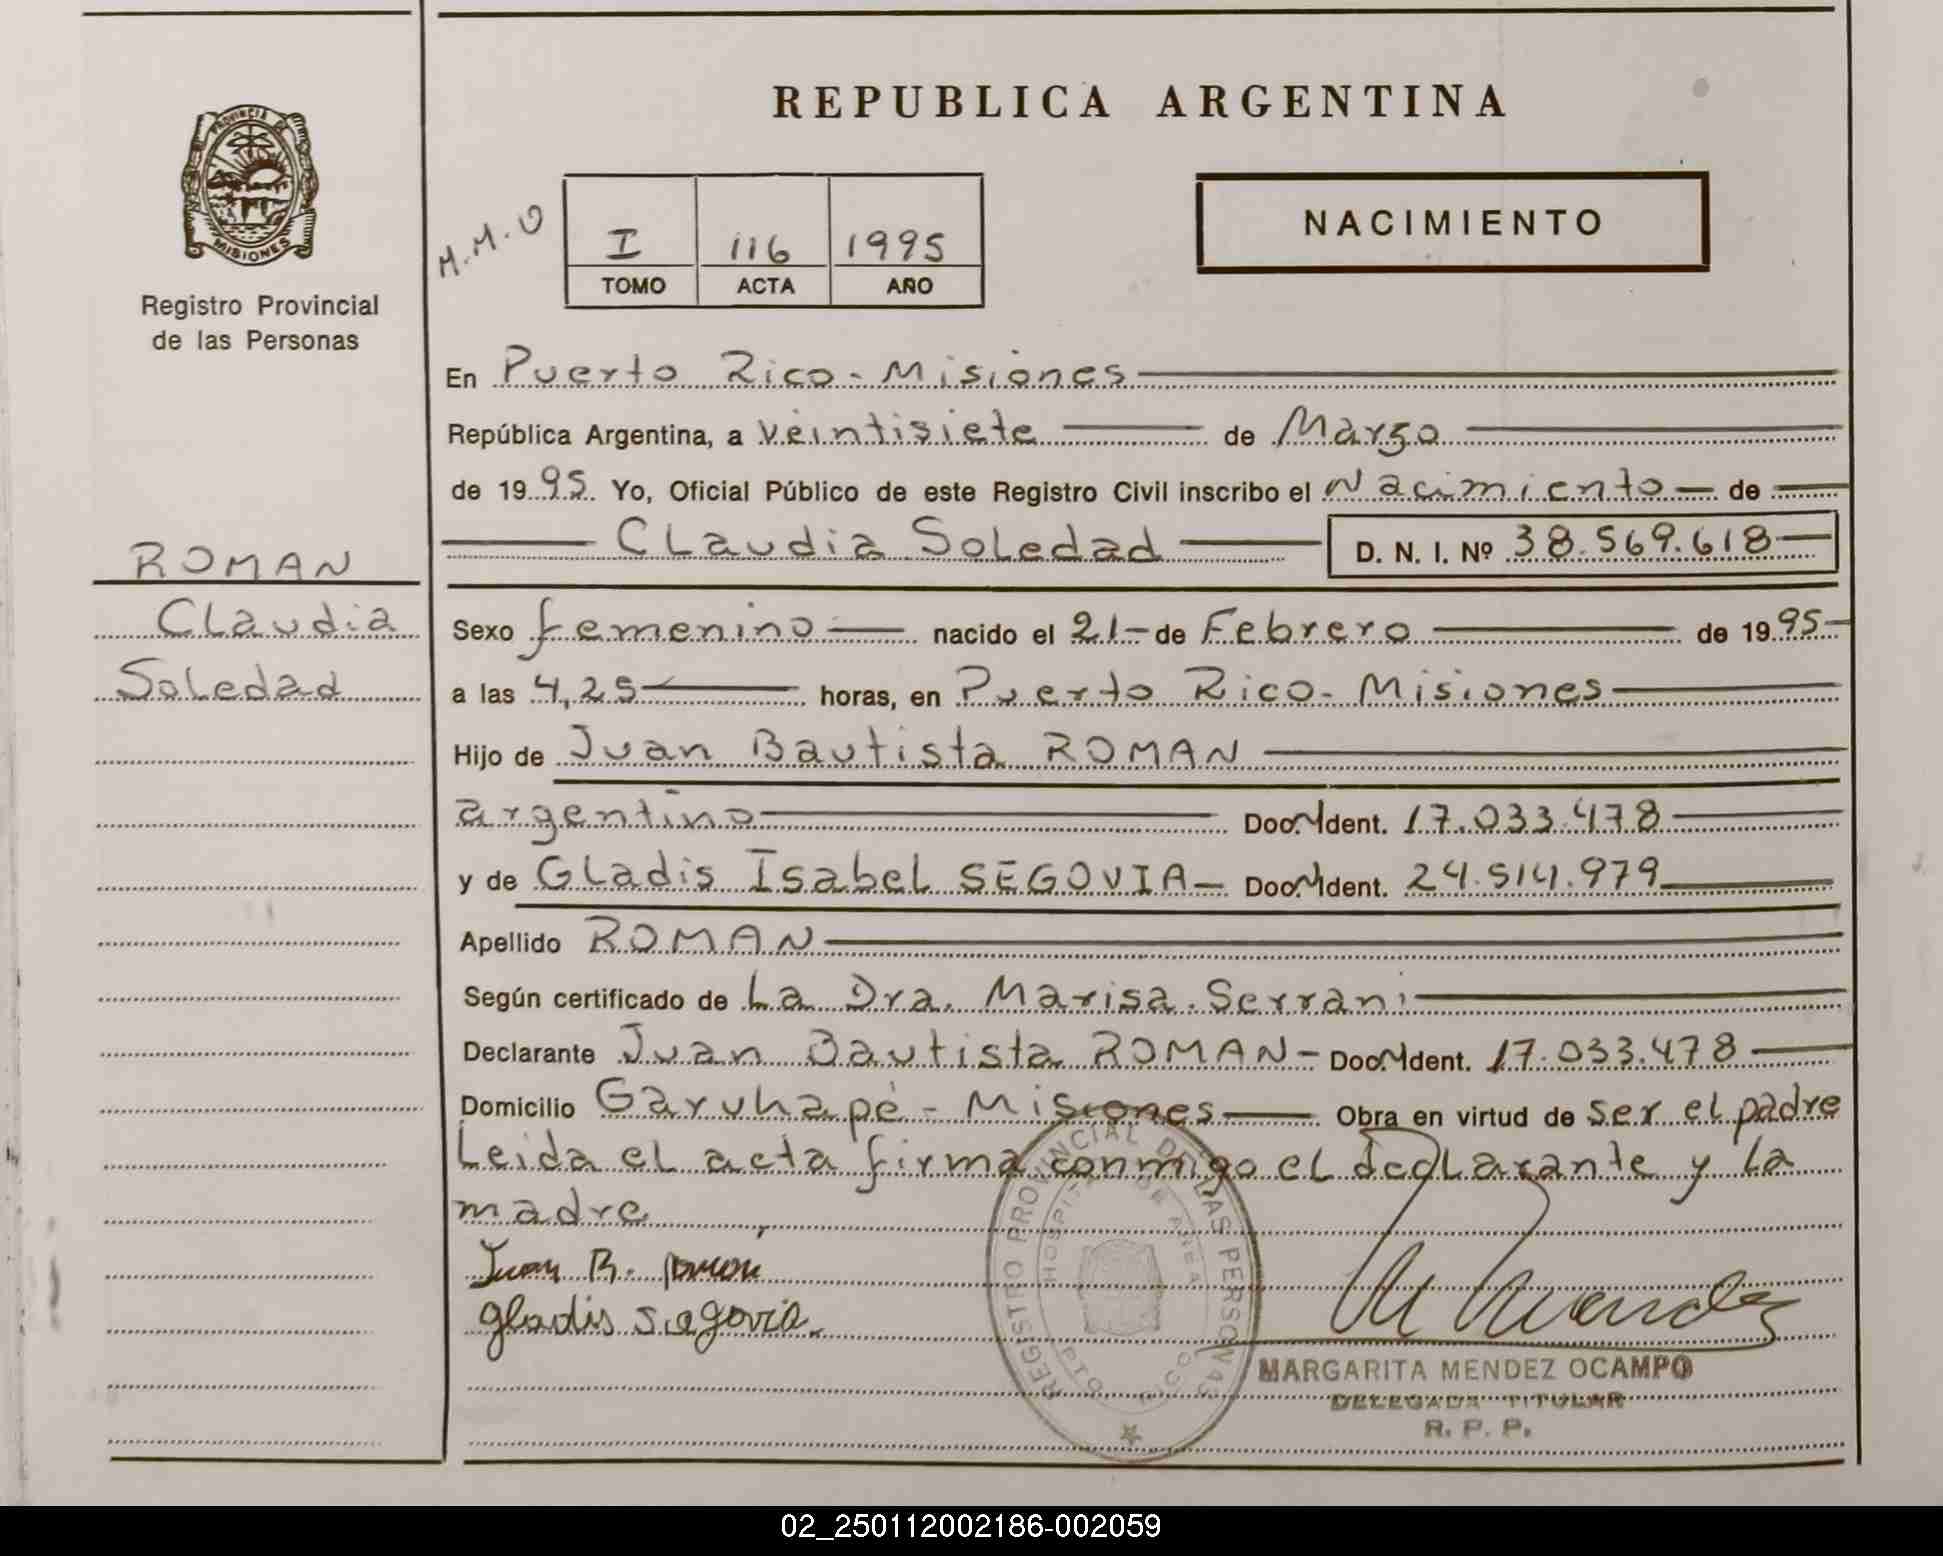 PROVINCIA DE
MISIONES
Registro Provincial
de las Personas
ROMAN
Claudia
Soledad
REPUBLICA ARGENTINA
M.M.O
I 116 1995
TOMO ACTA AÑO
NACIMIENTO
En Puerto Rico - Misiones
República Argentina, a veintisiete de Marzo
de 1995. Yo, Oficial Público de este Registro Civil inscribo el Nacimiento de
Claudia Soledad D. N. I. Nº 38.569.618
Sexo femenino nacido el 21 de Febrero de 1995
a las 4,25 horas, en Puerto Rico - Misiones
Hijo de Juan Bautista ROMAN
argentino Doc. Ident. 17.033.478
y de Gladis Isabel SEGOVIA Doc. Ident. 24.514.979
Apellido ROMAN
Según certificado de La Dra. Marisa Serrani
Declarante Juan Bautista ROMAN Doc. Ident. 17.033.478
Domicilio Garuhapé - Misiones Obra en virtud de ser el padre
Leida el acta firma conmigo el declarante y la
madre
Juan R.
gladis segovia.
REGISTRO PROVINCIAL DE LAS PERSONAS
HOSPITAL DE AREA
PTO. RICO
MARGARITA MENDEZ OCAMPO
DELEGADA TITULAR
R. P. P.
02_250112002186-002059